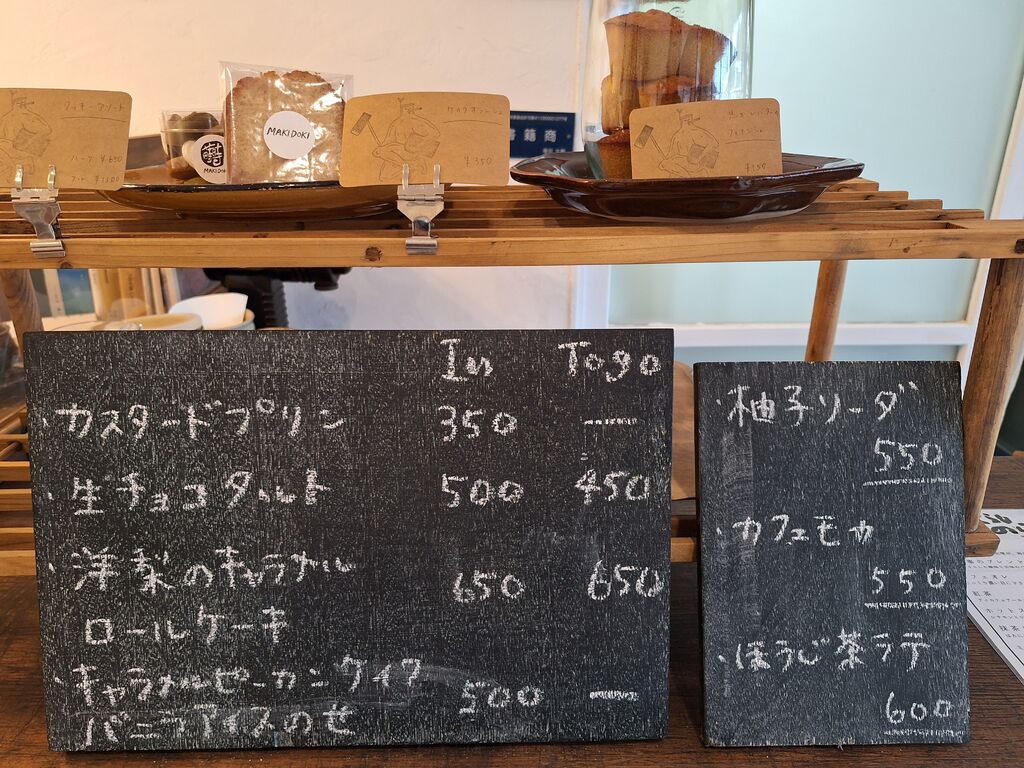 クッキーアソート
ハーフ ¥690
MAKIDOKI
¥350
書籍商
In Togo
・カスタードプリン 350 —
・生チョコタルト 500 450
・洋梨のキャラメル 650 650
ロールケーキ
・キャラメルピーカンケイク 500 —
バニラアイスのせ
・柚子ソーダ
550
・カフェモカ
550
・ほうじ茶ラテ
600